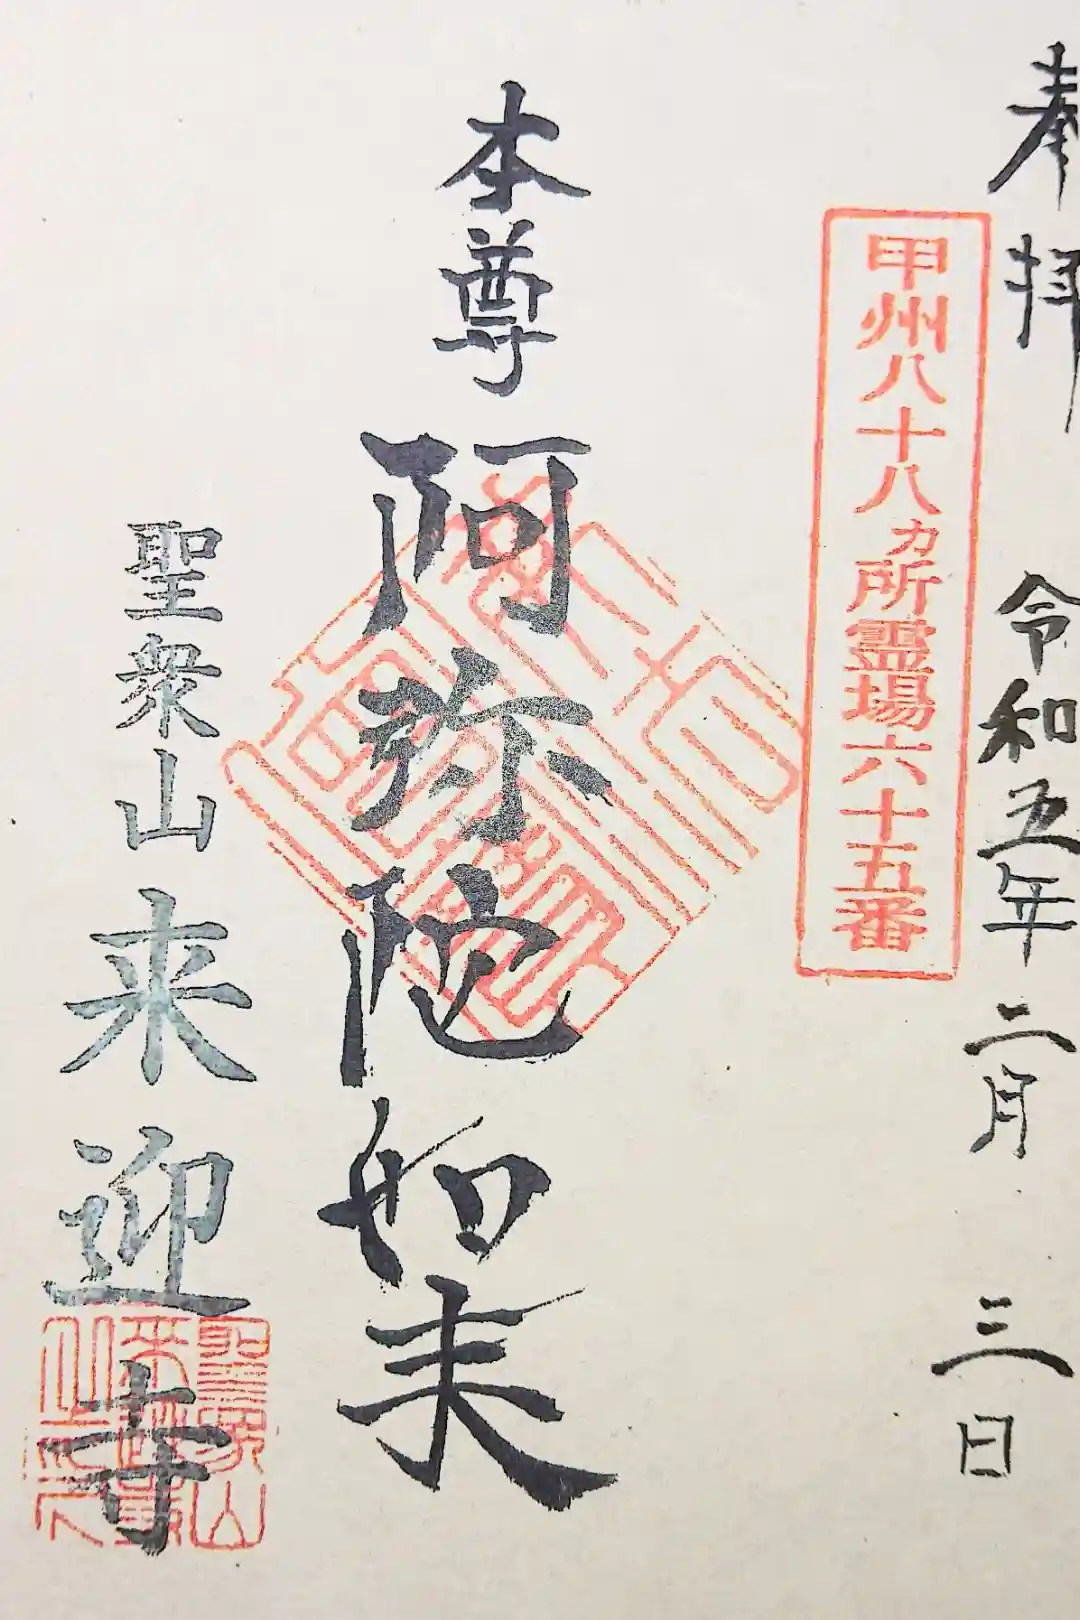 奉拝
令和五年二月三日
甲州八十八ヵ所霊場六十五番
本尊
阿弥陀如来
聖衆山
来迎寺